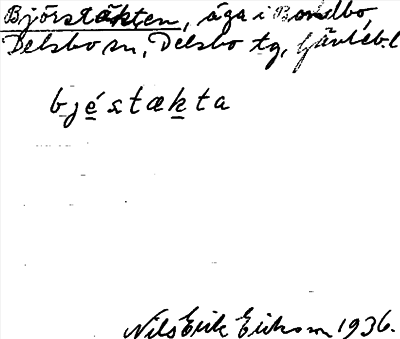 Björstäkten, äga i Bondbo,
Delsbo sn, Delsbo tg, Gävleb.l
bjéstækta
Nils Erik Erikson 1936.